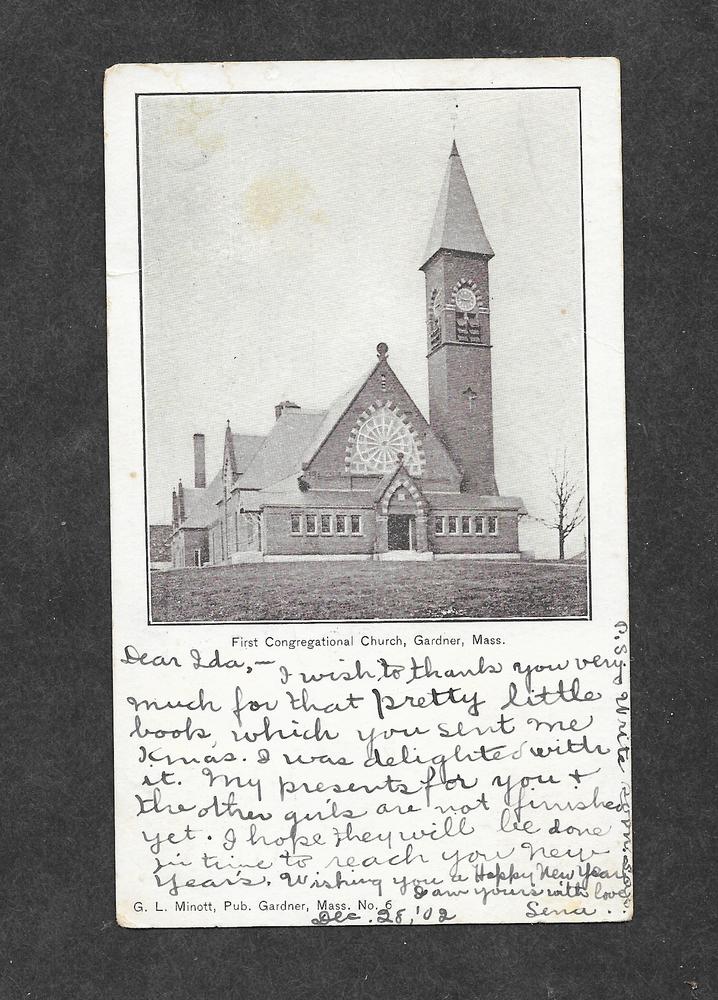 First Congregational Church, Gardner, Mass.
Dear Ida,— I wish to thank you very
much for that pretty little
book, which you sent me
Xmas. I was delighted with
it. My presents for you +
the other girls are not finished
yet. I hope they will be done
in time to reach you New
Year's. Wishing you a Happy New Year,
I am yours with love
Sena.
G. L. Minott, Pub. Gardner, Mass. No. 6
Dec. 28, '02
P.S. Write soon.